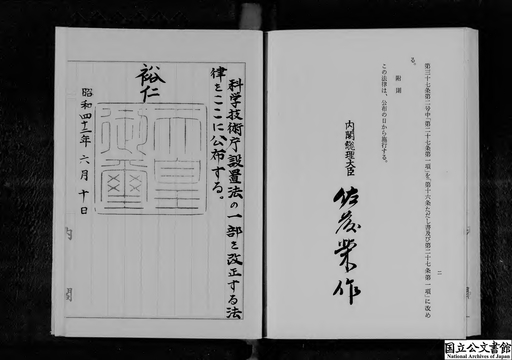 第三十七条第二号中「第二十七条第一項」を「第十六条ただし書及び第二十七条第一項」に改め
る。
附則
この法律は、公布の日から施行する。
内閣総理大臣
佐藤栄作
二
科学技術庁設置法の一部を改正する法
律をここに公布する。
裕仁
天皇御璽
昭和四十三年六月十日
内閣
国立公文書館
National Archives of Japan